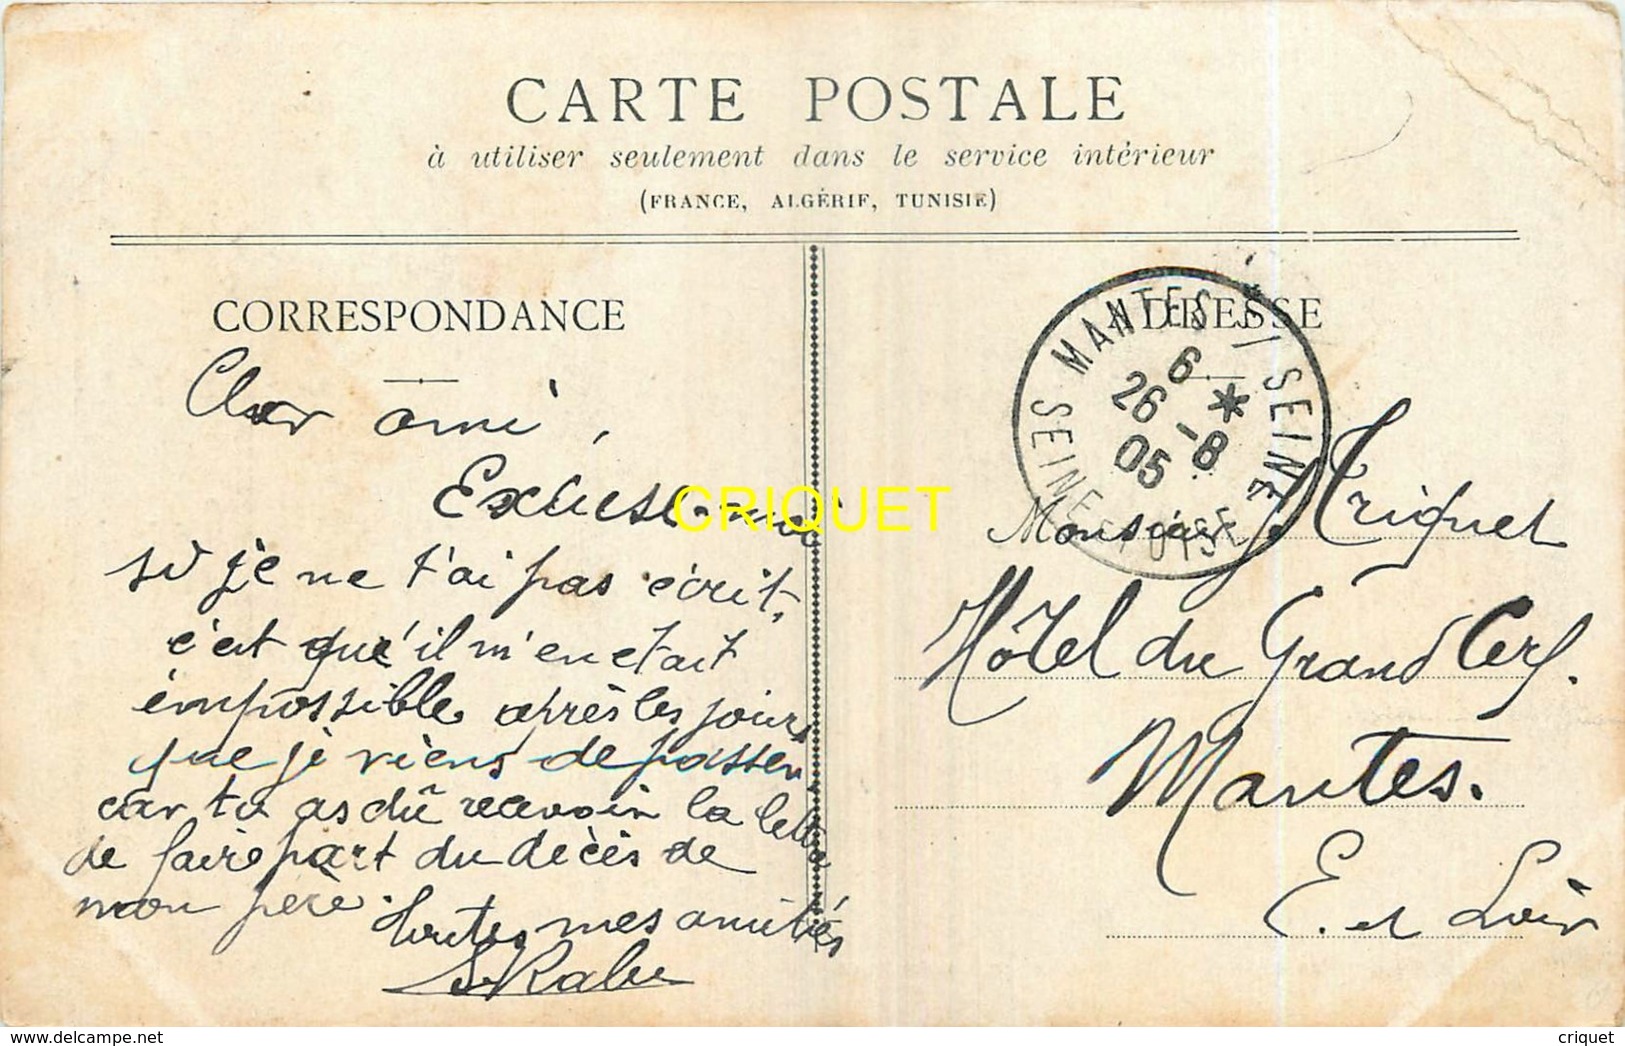 CARTE POSTALE
à utiliser seulement dans le service intérieur
(FRANCE, ALGÉRIE, TUNISIE)
CORRESPONDANCE
Cher ami,
Excuse-moi
si je ne t'ai pas écrit,
c'est qué'il m'en était
impossible après les jours
que je viens de passer,
car tu as dû recevoir la lettre
de faire part du décès de
mon père. Toutes mes amitiés
ADRESSE
MANTES S/ SEINE
6 *
26 -8
05
SEINE ET OISE
Monsieur Triquet
Hôtel du Grand Cerf.
Mantes.
E. et Loir
CRIQUET
www.delcampe.net
criquet